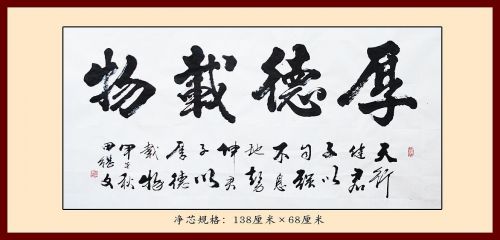 厚德載物
天行
健君
子以
自强
不息
地勢
坤君
子以
厚德
載物
甲午秋
田繼文
净芯规格：138厘米×68厘米